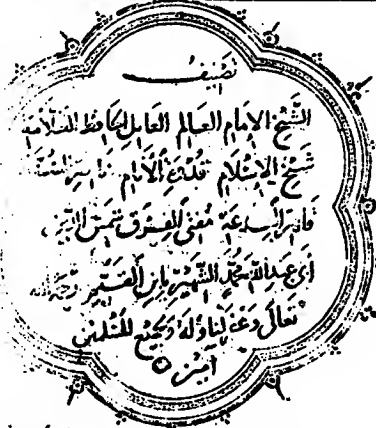 تصنيف
الشيخ الامام العالم العامل الحافظ العلامة
شيخ الاسلام قدوة الأنام ناصر السنة
قامع البدعة مفتي الفرق شمس الدين
أبي عبد الله محمد الشهير بابن القيم رحمه الله
تعالى وغفر لنا وله ولجميع المسلمين
امين